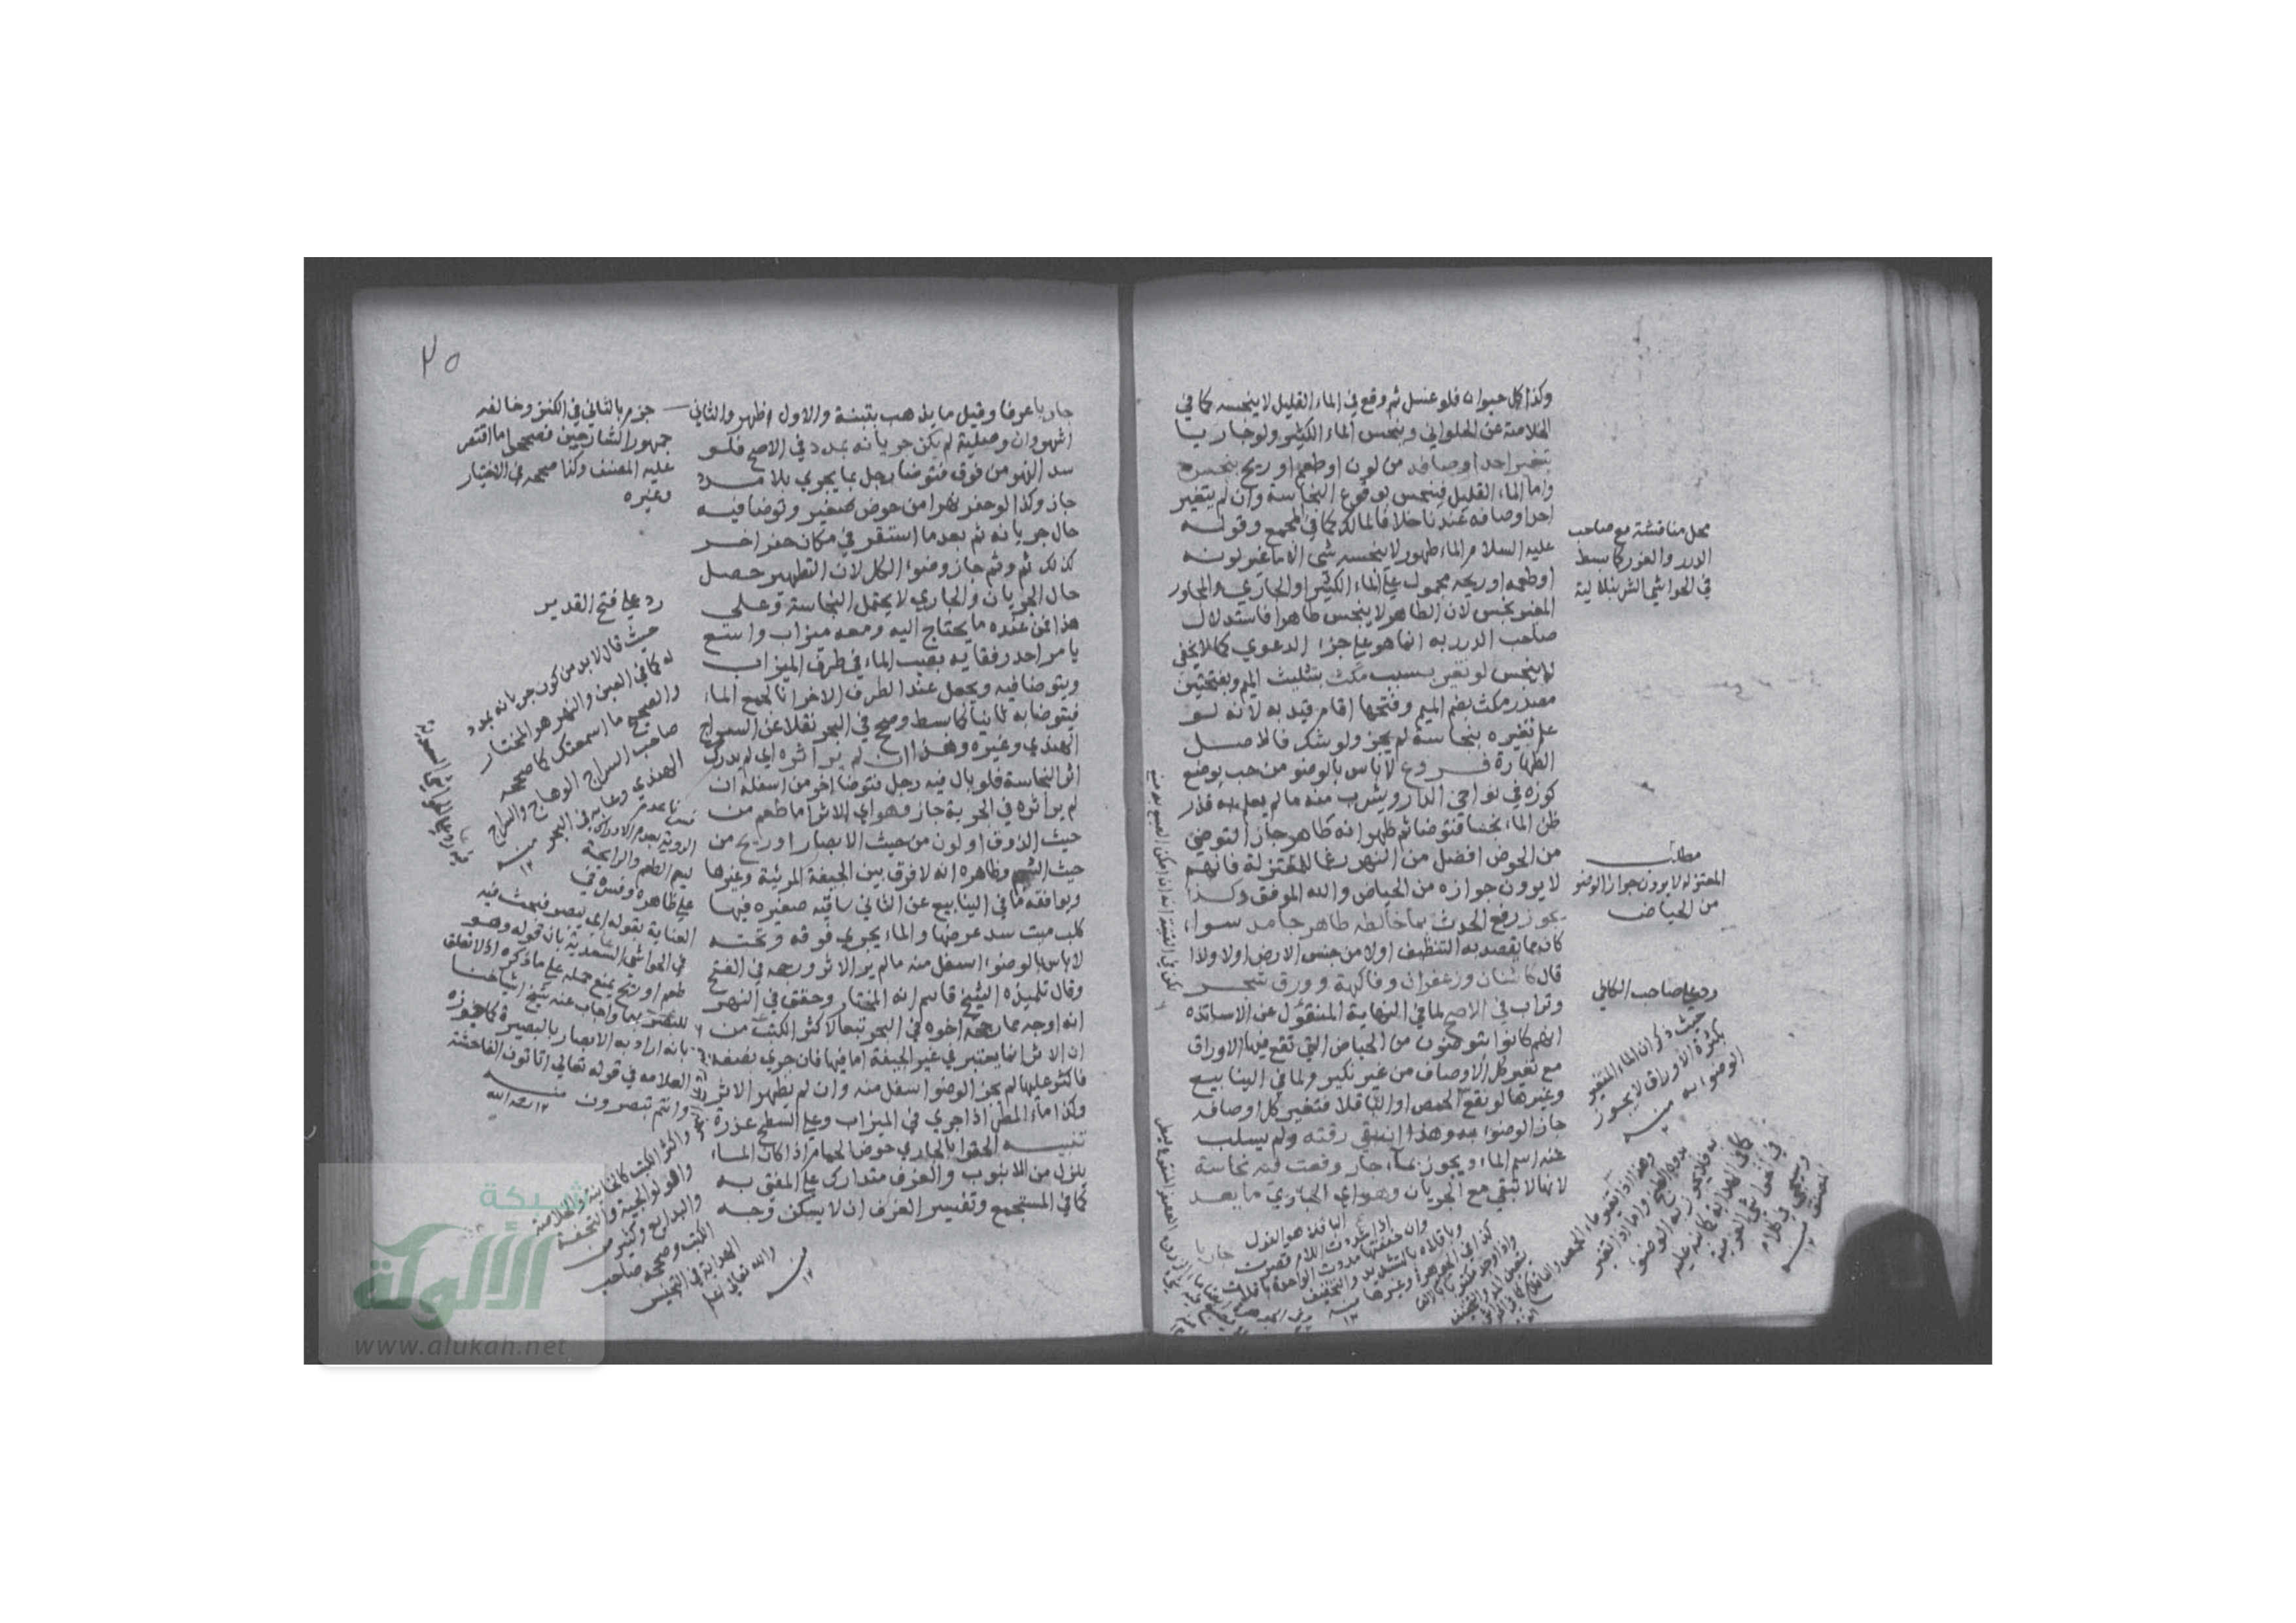 وكذا كل حيوان فلو غسل ثم وقع في الماء القليل لا ينجسه كما في
الخلاصة عن الحلواني وينجس الماء الكثير ولو جاريا
بتغير احد اوصافه من لون او طعم او ريح بنجس
واما الماء القليل فينجس بوقوع النجاسة وان لم يتغير
احد اوصافه عندنا خلافا لمالك كما في المجمع وقوله
عليه السلام الماء طهور لا ينجسه شي الا ما غير لونه
او طعمه او ريحه محمول علي الماء الكثير او الجاري والمجاور
المغير نجس لان الطاهر لا ينجس طاهرا فاستدلال
صاحب الدرر به انما هو علي جزء الدعوي كما لا يخفي
لا ينجس لو تغير بسبب مكث بتثليث الميم وبفتحتين
مصدر مكث بضم الميم وفتحها اقام قيد به لانه لو
علم تغيره بنجاسة لم يجز ولو شك فالاصل
الطهارة فروع لا باس بالوضوء من حب يوضع
كوزه في نواحي الدار ويشرب منه ما لم يعلم به قذر
ظن الماء نجسا فتوضا ثم ظهر انه طاهر جاز التوضي
من الحوض افضل من النهر رغما للمعتزلة فانهم
لا يرون جوازه من الحياض والله الموفق وكذا
يجوز رفع الحدث بما خالطه طاهر جامد سواء
كان مما يقصد به التنظيف اولا من جنس الارض اولا ولذا
قال كاشنان وزعفران وفاكهة وورق شجر
وتراب في الاصح لما في النهاية المنقول عن الاساتذه
انهم كانوا يتوضئون من الحياض التي تقع فيها الاوراق
مع تغير كل الاوصاف من غير نكير ولما في الينابيع
وغيرها لو نقع الحمص او الباقلا فتغير كل اوصافه
جاز الوضوء به وهذا ان بقي رقته ولم يسلب
عنه اسم الماء ويجوز بماء جار وقعت فيه نجاسة
لانها لا تبقي مع الجريان وهو اي الجاري ما يعد
جاريا
محل مناقشة مع صاحب
الدرر والغرر كما بسط
في الحواشي الشرنبلالية
مطلب
المعتزله لا يرون جواز الوضو
من الحياض
رد علي صاحب الكافي
حيث ذكر ان الماء المتغير
بكثرة الاوراق لا يجوز
الوضوء به منه
الباقلا هو الفول
اذا شددت اللام قصرت
وان خففتها مددت الواحدة باقلاة
وباقلاه بالتشديد والتخفيف
كذا في الجوهرة وغيرها منه
٢٥
جاريا عرفا وقيل ما يذهب بتبنة والاول اظهر والثاني
اشهر وان وصلية لم يكن جريانه بمدد في الاصح فلو
سد النهر من فوق فتوضا رجل بما يجري بلا مدد
جاز وكذا لو حفر نهرا من حوض صغير وتوضا فيه
حال جريانه ثم بعد ما استقر في مكان حفر اخر
كذلك ثم وثم جاز وضوء الكل لان التطهير حصل
حال الجريان والجاري لا يحتمل النجاسة وعلي
هذا فمن عنده ما يحتاج اليه ومعه ميزاب واسع
يامر احد رفقايه بصب الماء في طرف الميزاب
ويتوضا فيه ويجعل عند الطرف الاخر انا لجمع الماء
فيتوضا به ثانيا كما بسط وصحح في البحر نقلا عن السراج
الهندي وغيره وهذا ان لم ير اثره اي لم يدرك
اثر النجاسة فلو بال فيه رجل فتوضا اخر من اسفله ان
لم ير اثره في الجرية جاز وهو اي الاثر اما طعم من
حيث الذوق او لون من حيث الابصار او ريح من
حيث الشم وظاهره انه لا فرق بين الجيفة المرئية وغيرها
ويوافقه ما في الينابيع عن الثاني ساقية صغيره فيها
كلب ميت سد عرضها والماء يجري فوقه وتحته
لا باس بالوضوء اسفل منه ما لم ير الاثر ورجحه في الفتح
وقال تلميذه الشيخ قاسم انه المختار وحقق في النهر
انه اوجه مما رجحه اخوه في البحر تبعا لاكثر الكتب من
ان الاثر انما يعتبر في غير الجيفة اما فيها فان جري نصفه
فاكثر عليها لم يجز الوضو اسفل منه وان لم يظهر الاثر
وكذا ماء المطر اذا جري في الميزاب وعلي السطح عذرة
تنبيه الحقوا بالجاري حوض الحمام اذا كان الماء
ينزل من الانبوب والغرف متدارك علي المفتي به
كما في المستجمع وتفسير الغرف ان لا يسكن وجه
جزم بالثاني في الكنز وخالفه
جمهور الشارحين فصححوا ما اقتصر
عليه المصنف وكذا صححه في الاختيار
وغيره
رد علي فتح القدير
حيث قال لا بد من كون جريانه بمدد
له كما في العين والنهر هو المختار
والصحيح ما اسمعتك كما صححه
صاحب السراج الوهاج والسراج
الهندي وغيره في البحر منه
العناية بقوله اي يبصر فبحث فيه
في الحواشي السعدية بان قوله وهو
طعم او ريح يمنع حمله علي ما ذكره اذ لا تعلق
للبصر بهما واجاب عنه شيخ اشياخنا
بانه اراد به الابصار بالبصيرة كما جوزه
العلامه في قوله تعالي اتاتون الفاحشة
وانتم تبصرون منه رحمه الله
والله تعالي اعلم
منه
شبكة
الألوكة
www.alukah.net